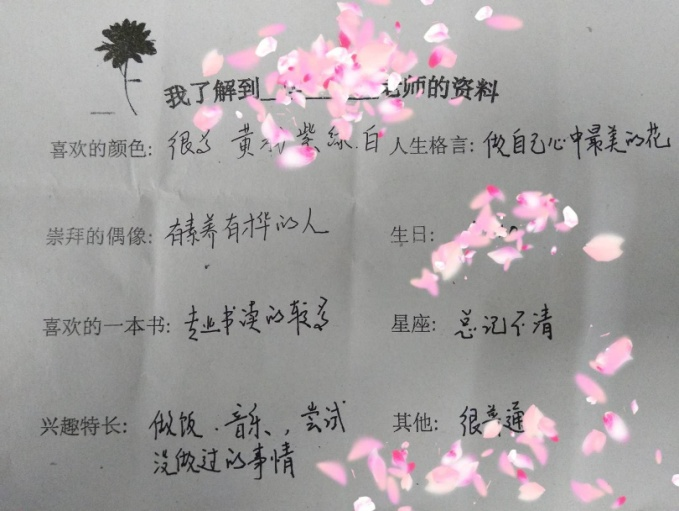 我了解到_ _ ___老师的资料
喜欢的颜色: 很多 黄 紫 绿.白 人生格言: 做自己心中最美的花
崇拜的偶像: 有素养有才华的人 生日:
喜欢的一本书: 专业书读的较多 星座: 总记不清
兴趣特长: 做饭.音乐、尝试 其他: 很普通
没做过的事情